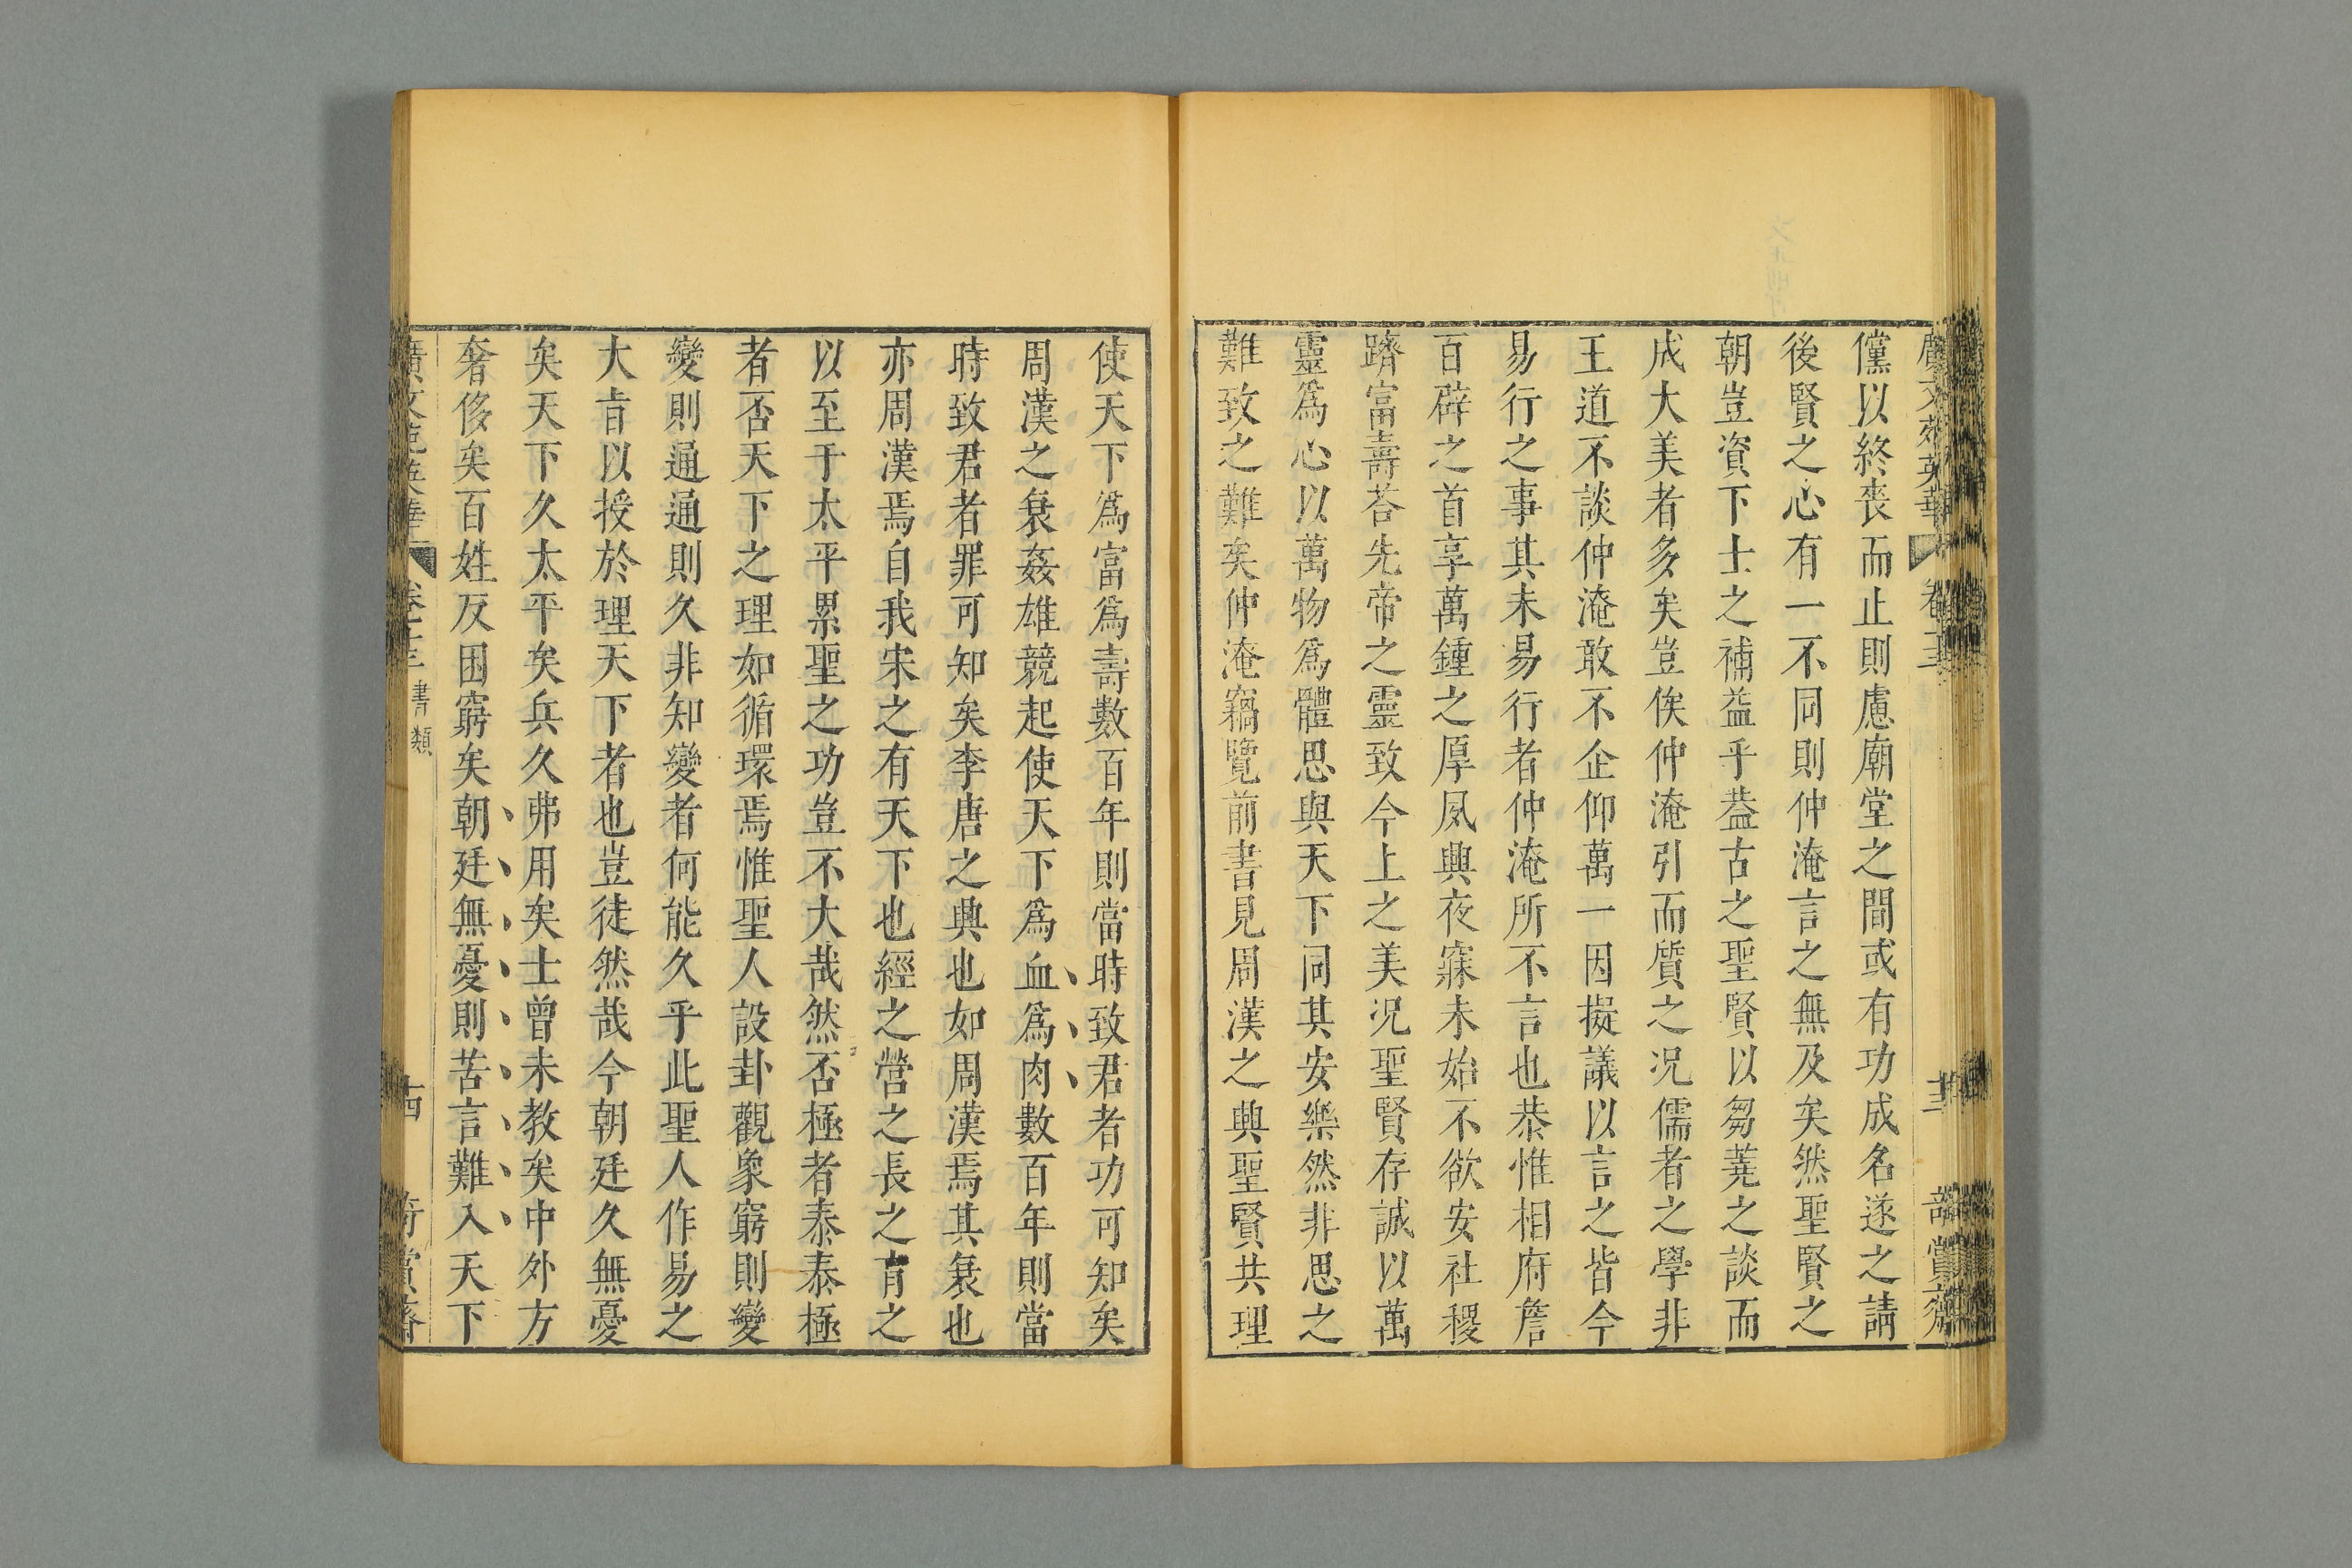 儻以終喪而止則慮廟堂之間或有功成名遂之請
後賢之心有一不同則仲淹言之無及矣然聖賢之
朝豈資下士之補益乎葢古之聖賢以芻蕘之談而
成大美者多矣豈俟仲淹引而質之况儒者之學非
王道不談仲淹敢不企仰萬一因擬議以言之皆今
易行之事其未易行者仲淹所不言也恭惟相府詹
百辟之首享萬鍾之厚夙興夜寐未始不欲安社稷
躋富壽荅先帝之靈致今上之美况聖賢存誠以萬
靈爲心以萬物爲體思與天下同其安樂然非思之
難致之難矣仲淹竊覽前書見周漢之興聖賢共理
使天下爲富爲壽數百年則當時致君者功可知矣
周漢之衰姦雄競起使天下爲血爲肉數百年則當
時致君者罪可知矣李唐之興也如周漢焉其衰也
亦周漢焉自我宋之有天下也經之營之長之育之
以至于太平累聖之功豈不大哉然否極者泰泰極
者否天下之理如循環焉惟聖人設卦觀象窮則變
變則通通則久非知變者何能久乎此聖人作易之
大旨以授於理天下者也豈徒然哉今朝廷久無憂
矣天下久太平矣兵久弗用矣士曾未教矣中外方
奢侈矣百姓反困窮矣朝廷無憂則苦言難入天下
廣文苑英華 卷十三 書類 十四